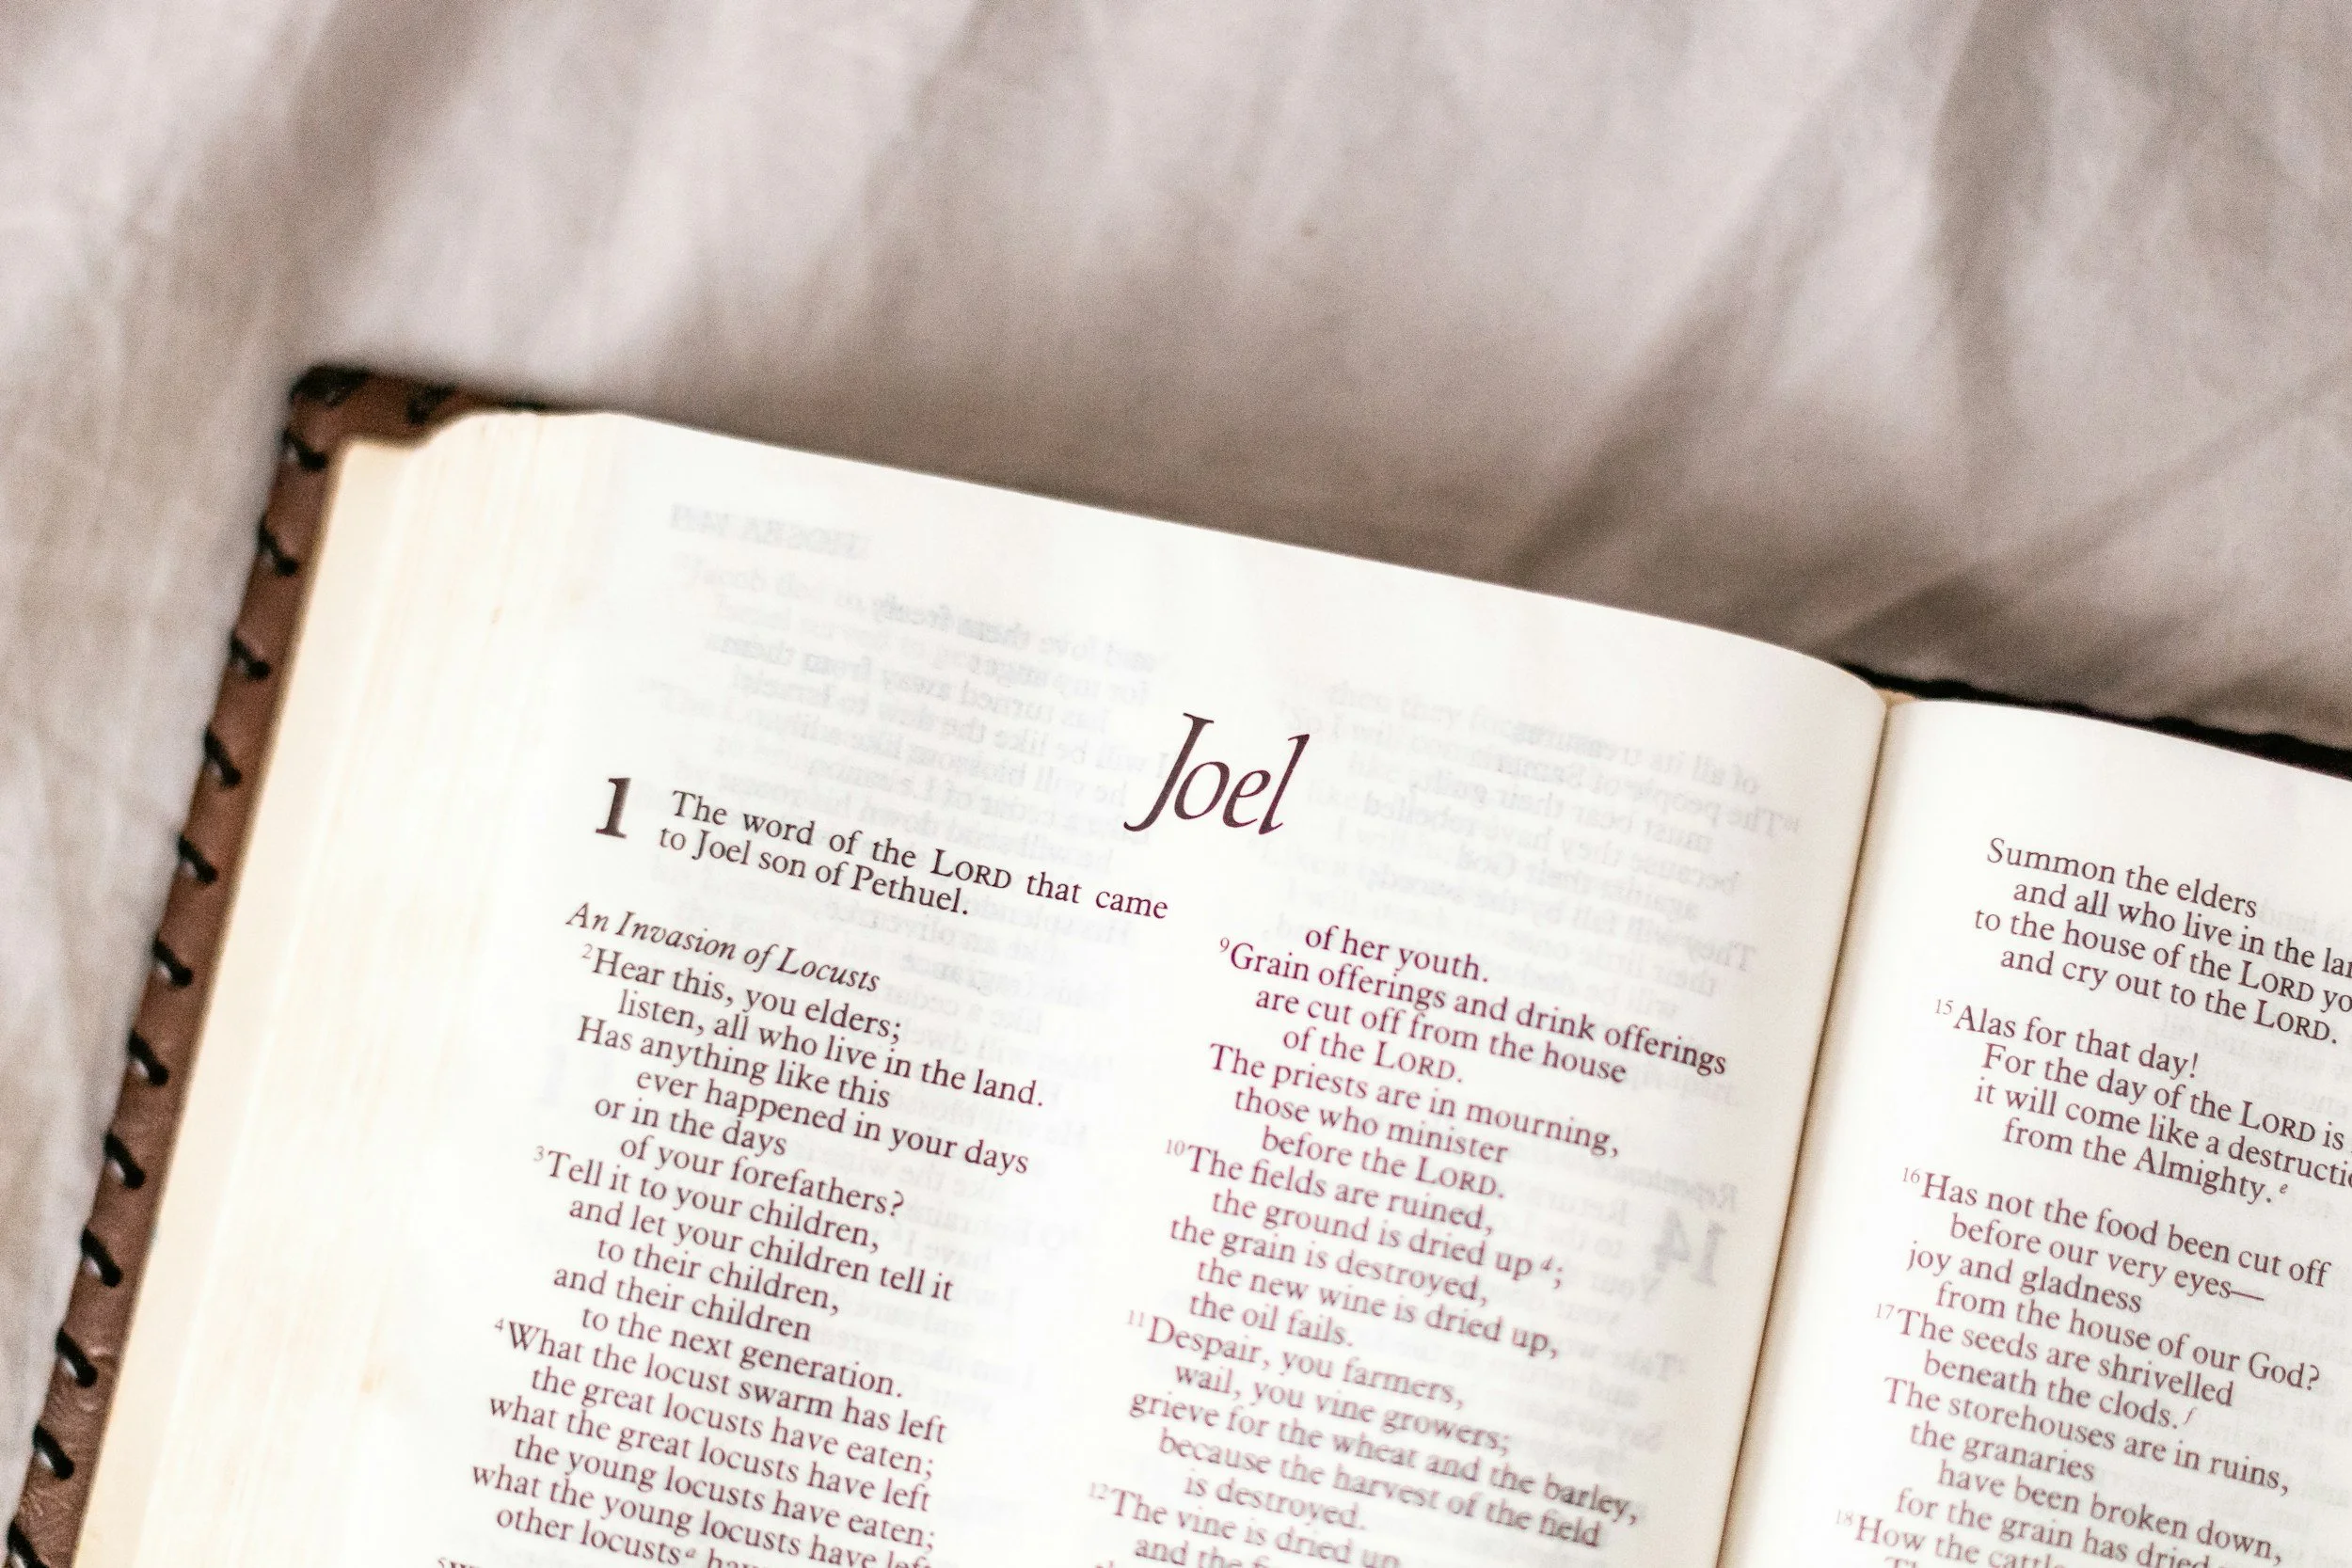 Joel
1 The word of the LORD that came
to Joel son of Pethuel.
An Invasion of Locusts
2Hear this, you elders;
listen, all who live in the land.
Has anything like this
ever happened in your days
or in the days
of your forefathers?
3Tell it to your children,
and let your children tell it
to their children,
and their children
to the next generation.
4What the locust swarm has left
the great locusts have eaten;
what the great locusts have left
the young locusts have eaten;
what the young locusts have left
other locustsa
of her youth.
9Grain offerings and drink offerings
are cut off from the house
of the LORD.
The priests are in mourning,
those who minister
before the LORD.
10The fields are ruined,
the ground is dried up d;
the grain is destroyed,
the new wine is dried up,
the oil fails.
11Despair, you farmers,
wail, you vine growers;
grieve for the wheat and the barley,
because the harvest of the field
is destroyed.
12The vine is dried up
and the
Summon the elders
and all who live in the
to the house of the LORD
and cry out to the LORD.
15Alas for that day!
For the day of the LORD is
it will come like a
from the Almighty.e
16Has not the food been cut off
before our very eyes—
joy and gladness
from the house of our God?
17The seeds are shrivelled
beneath the clods.f
The storehouses are in ruins,
the granaries
have been broken down,
for the grain has dried
18How the cattle